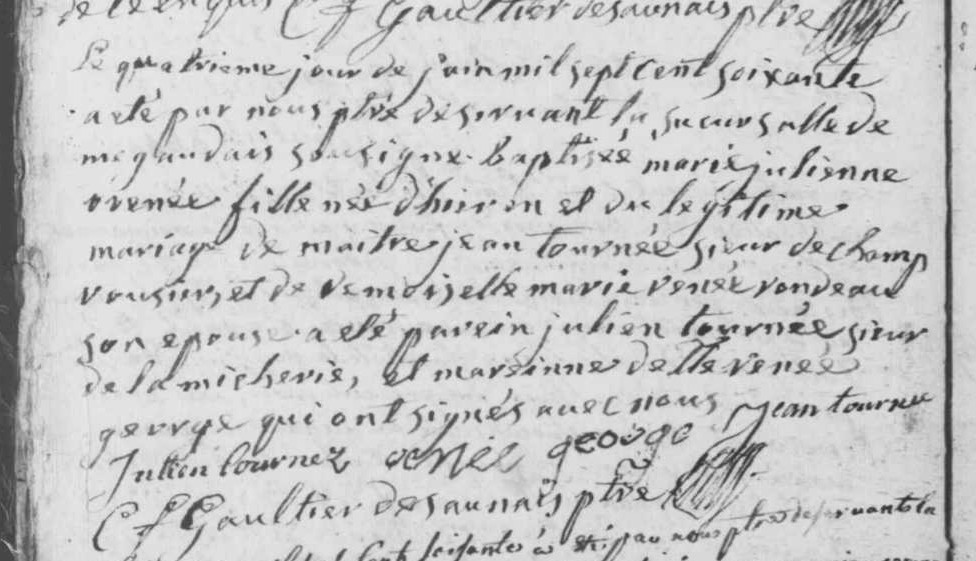 C f Gaultier desaunais ptre
Le quatrieme jour de juin mil sept cent soixante
a eté par nous ptre desservant la sucursalle de
megaudais sousigne baptisée marie julienne
renée fille née d'hier en et du légitime
mariage de maitre jean tournée sieur de champ
rousier, et de demoiselle marie renée rondeau
son epouse a eté parein julien tournée sieur
de la micherie, et mareinne delle renée
george qui ont signés avec nous jean tournee
Julien tournez renée george
C f Gaultier desaunais ptre
soisante a eté par nous ptre deservant la